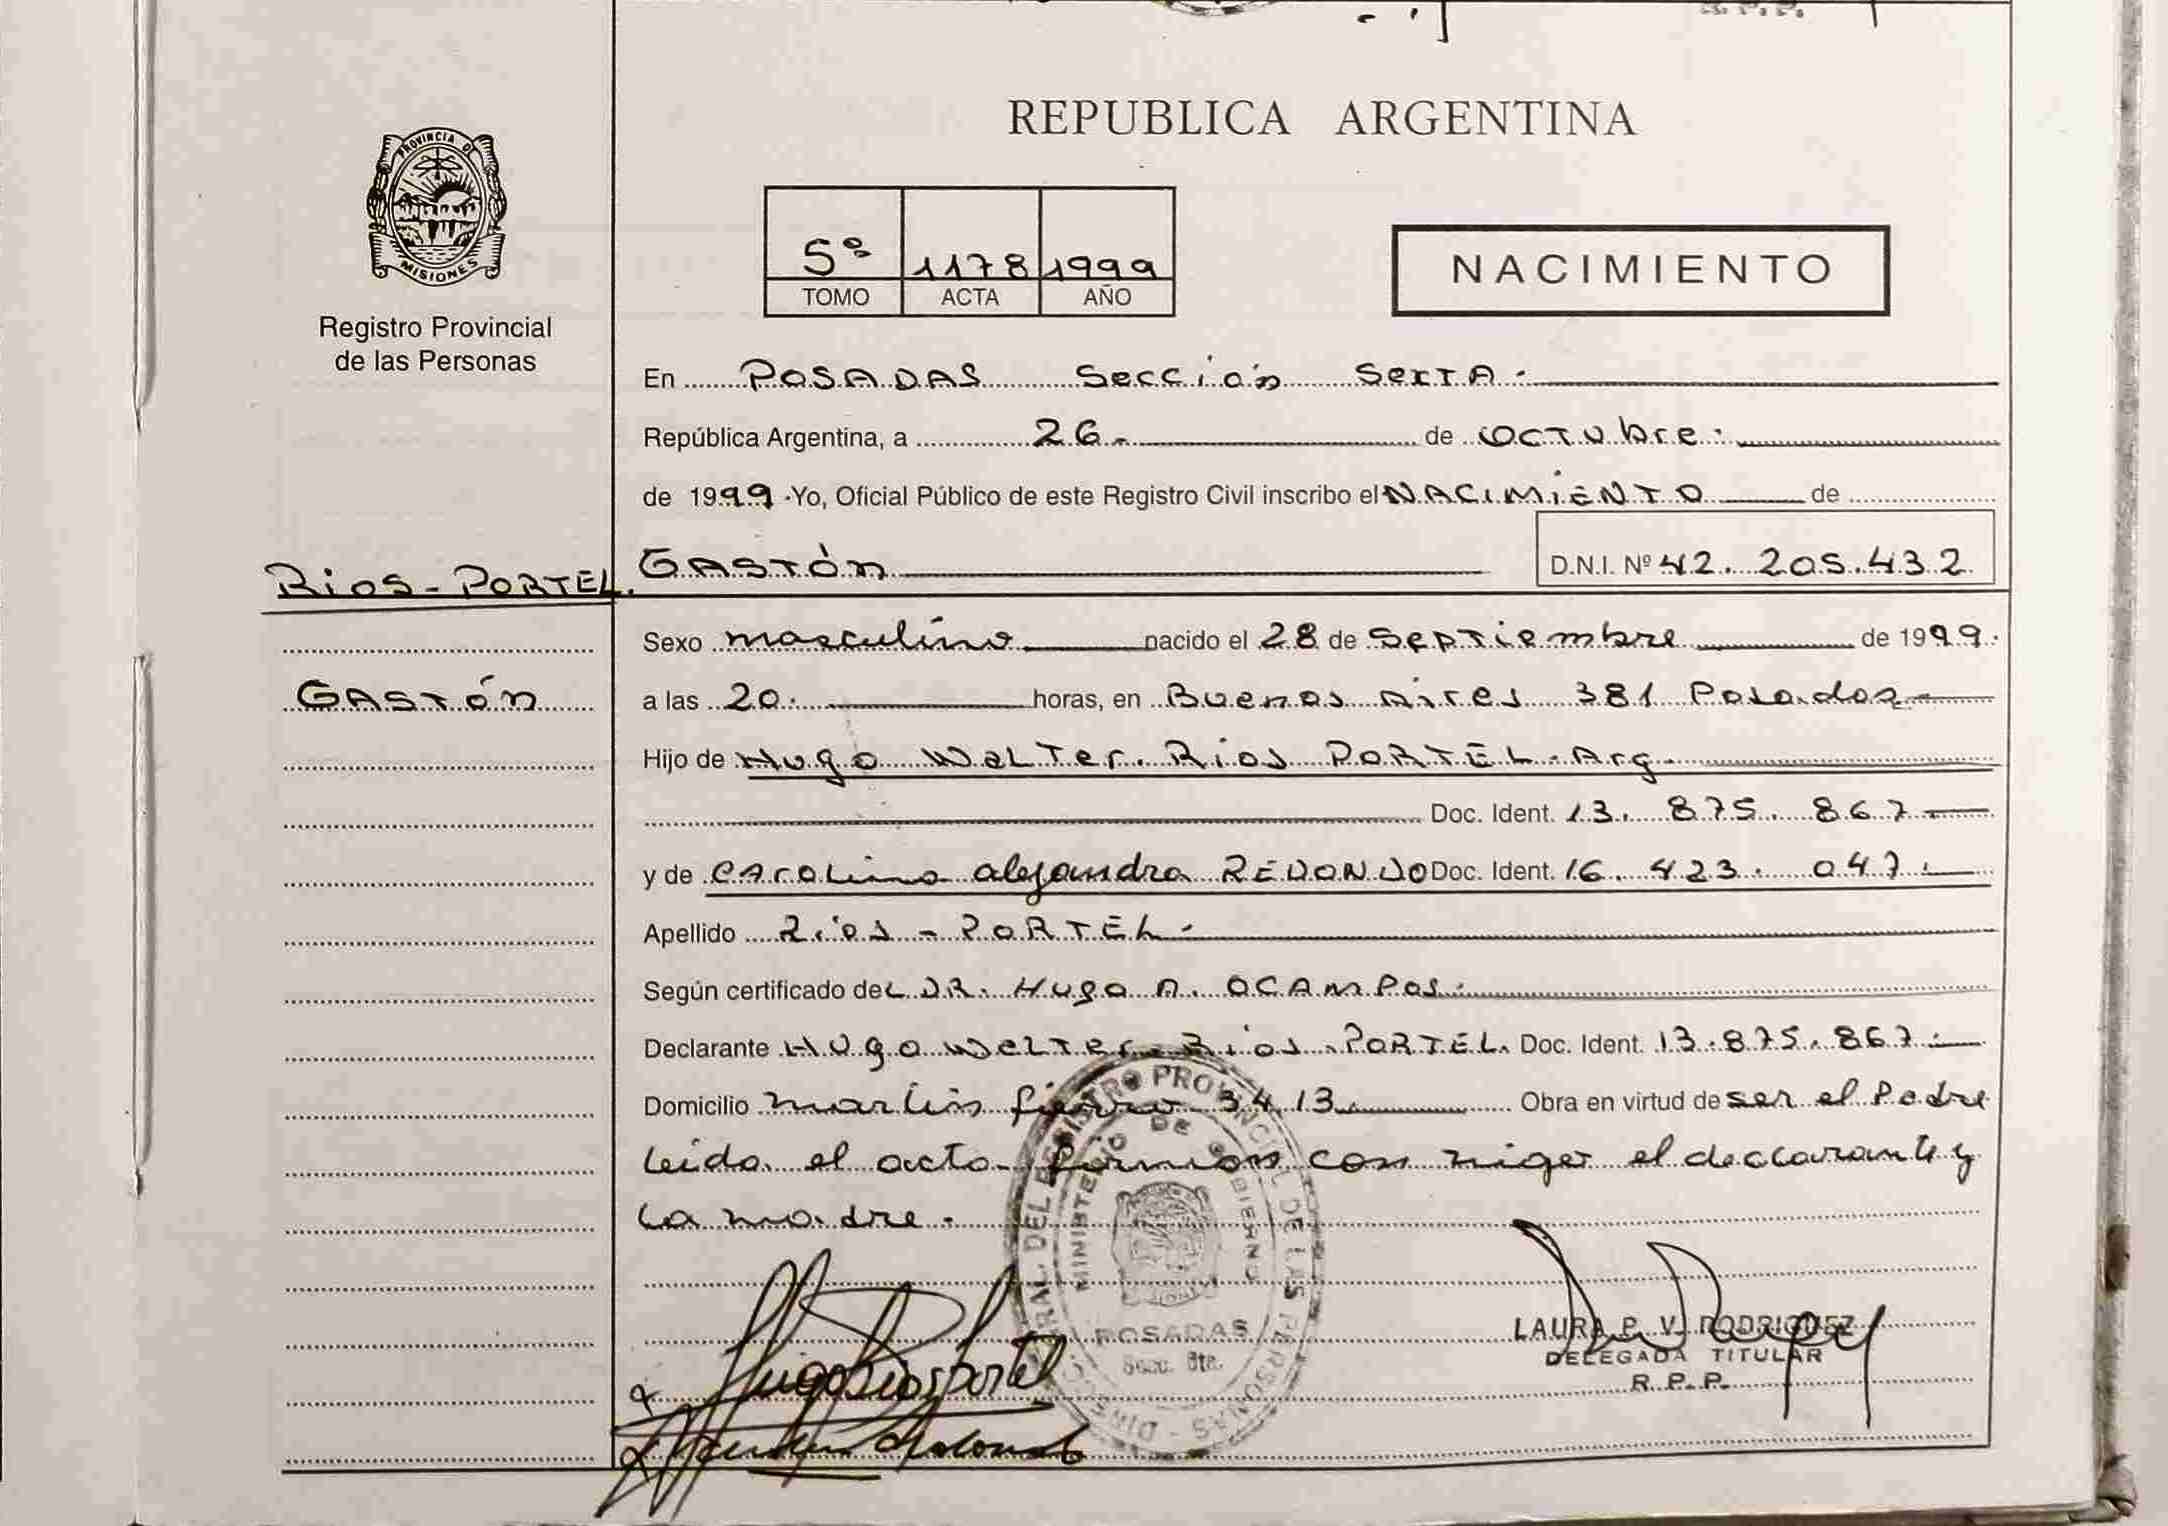 R.P.P.
PROVINCIA DE
MISIONES
Registro Provincial
de las Personas
REPUBLICA ARGENTINA
5º 1178 1999
TOMO ACTA AÑO
NACIMIENTO
En POSADAS Sección Sexta.
República Argentina, a 26. de Octubre.
de 1999 Yo, Oficial Público de este Registro Civil inscribo el NACIMIENTO de
Rios-PORTEL. GASTÓN D.N.I. Nº 42.205.432
Sexo masculino nacido el 28 de Septiembre de 1999.
GASTÓN a las 20. horas, en Buenos Aires 381 Posadas
Hijo de Hugo Walter Rios PORTEL. Arg.
Doc. Ident. 13.875.867
y de Carolina alejandra REDONDO Doc. Ident. 16.423.047.
Apellido Rios - PORTEL.
Según certificado del DR. Hugo A. OCAMPOS.
Declarante Hugo Walter Rios PORTEL. Doc. Ident. 13.875.867.
Domicilio martin fierro 3413. Obra en virtud de ser el Padre
leida el acta firman con el declarante y
la madre.
REGISTRO PROVINCIAL DE LAS PERSONAS
MINISTERIO DE GOBIERNO
POSADAS
Secc. 6ta.
Hugo Rios Portel
LAURA P. V. RODRIGUEZ
DELEGADA TITULAR
R. P. P.